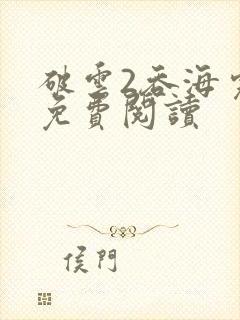 破雲2吞海
免費閱讀
侯門